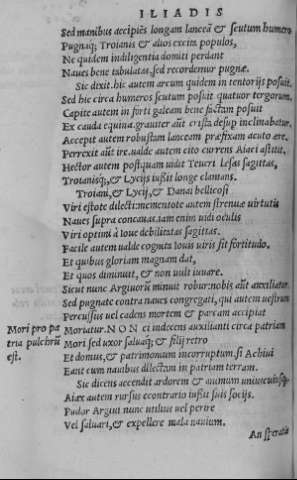 ILIADIS
Sed manibus accipiẽs longam lanceã & scutum humero
Pugnaq; Troianis & alios exciens populos,
Ne quidem indiligentia domiti perdant
Naues bene tabulatas, sed recordemur pugnæ.
Sic dixit. hic autem arcum quidem in tentorijs posuit.
Sed hic circa humeros scutum posuit quatuor tergorum.
Capite autem in forti galeam bene factam posuit
Ex cauda equina. grauiter aũt crista desup inclinabatur.
Accepit autem robustam lanceam præfixam acuto ære.
Perrexit aũt ire. ualde autem cito currens Aiaci astitit.
Hector autem postquam uidit Teucri læsas sagittas,
Troianisq;, & Lycijs iussit longe clamans.
Troiani, & Lycij, & Danai bellicosi
Viri estote dilecti: mementote autem strenuæ uirtutis
Naues supra concauas. iam enim uidi oculis
Viri optimi à Ioue debilitatas sagittas.
Facile autem ualde cognita Iouis uiris sit fortitudo.
Et quibus gloriam magnam dat,
Et quos diminuit, & non uult iuuare.
Sicut nunc Argiuorũ minuit robur: nobis aũt auxiliatur.
Sed pugnate contra naues congregati, qui autem uestrum
Percussus uel cadens mortem & parcam accipiat
Mori pro patria pulchrũ est.
Moriatur. NON ei indecens auxilianti circa patriam
Mori sed uxor saluaq; & filij retro
Et domus, & patrimonium incorruptum. si Achiui
Eant cum nauibus dilectam in patriam terram.
Sic dicens accendit ardorem & animum uniuscuiusq;
Aiax autem rursus econtrario iussit suis socijs.
Pudor Argiui nunc utilius uel perire
Vel saluari, & expellere mala nauium.
An speratis